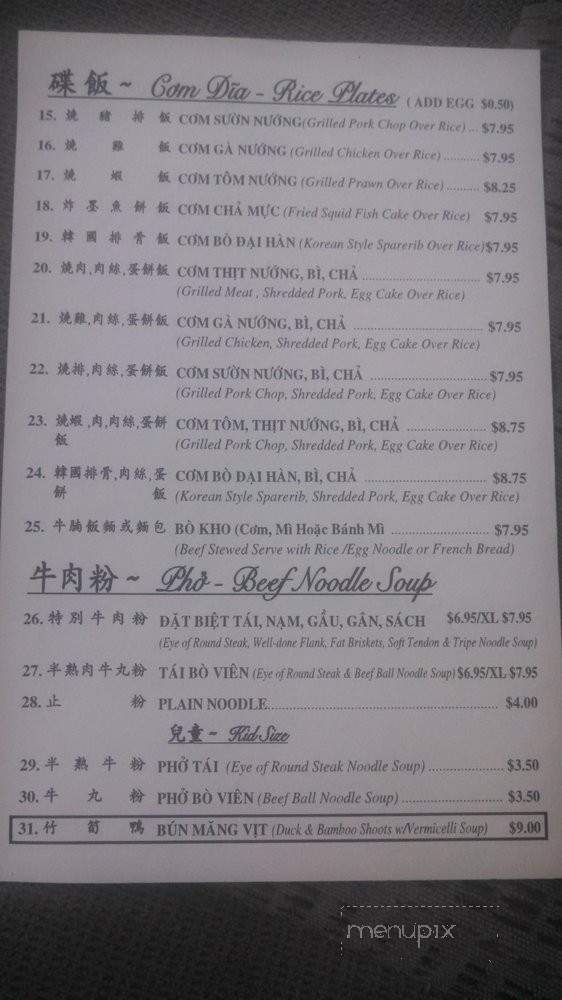 碟飯 ~ Cơm Dĩa - Rice Plates ( ADD EGG $0.50)
15. 燒豬排飯 CƠM SƯỜN NƯỚNG(Grilled Pork Chop Over Rice) ... $7.95
16. 燒雞飯 CƠM GÀ NƯỚNG (Grilled Chicken Over Rice) ........... $7.95
17. 燒蝦飯 CƠM TÔM NƯỚNG (Grilled Prawn Over Rice) .......... $8.25
18. 炸墨魚餅飯 CƠM CHẢ MỰC (Fried Squid Fish Cake Over Rice) $7.95
19. 韓國排骨飯 CƠM BÒ ĐẠI HÀN (Korean Style Sparerib Over Rice)$7.95
20. 燒肉,肉絲,蛋餅飯 CƠM THỊT NƯỚNG, BÌ, CHẢ ................................ $7.95
(Grilled Meat , Shredded Pork, Egg Cake Over Rice)
21. 燒雞,肉絲,蛋餅飯 CƠM GÀ NƯỚNG, BÌ, CHẢ ................................... $7.95
(Grilled Chicken, Shredded Pork, Egg Cake Over Rice)
22. 燒排,肉絲,蛋餅飯 CƠM SƯỜN NƯỚNG, BÌ, CHẢ ............................... $7.95
(Grilled Pork Chop, Shredded Pork, Egg Cake Over Rice)
23. 燒蝦,肉,肉絲,蛋餅 CƠM TÔM, THỊT NƯỚNG, BÌ, CHẢ ..................... $8.75
飯 (Grilled Pork Chop, Shredded Pork, Egg Cake Over Rice)
24. 韓國排骨,肉絲,蛋 CƠM BÒ ĐẠI HÀN, BÌ, CHẢ ................................ $8.75
餅飯 (Korean Style Sparerib, Shredded Pork, Egg Cake Over Rice)
25. 牛腩飯麵或麵包 BÒ KHO (Cơm, Mì Hoặc Bánh Mì .......................... $7.95
(Beef Stewed Serve with Rice /Egg Noodle or French Bread)
牛肉粉 ~ Phở - Beef Noodle Soup
26. 特別牛肉粉 ĐẶT BIỆT TÁI, NẠM, GẦU, GÂN, SÁCH $6.95/XL $7.95
(Eye of Round Steak, Well-done Flank, Fat Briskets, Soft Tendon & Tripe Noodle Soup)
27. 半熟肉牛丸粉 TÁI BÒ VIÊN (Eye of Round Steak & Beef Ball Noodle Soup) $6.95/XL $7.95
28. 止粉 PLAIN NOODLE............................................................... $4.00
兒童 ~ Kid Size
29. 半熟牛粉 PHỞ TÁI (Eye of Round Steak Noodle Soup) .................... $3.50
30. 牛丸粉 PHỞ BÒ VIÊN (Beef Ball Noodle Soup) ........................... $3.50
31. 竹筍鴨 BÚN MĂNG VỊT (Duck & Bamboo Shoots w/Vermicelli Soup) $9.00
menupix